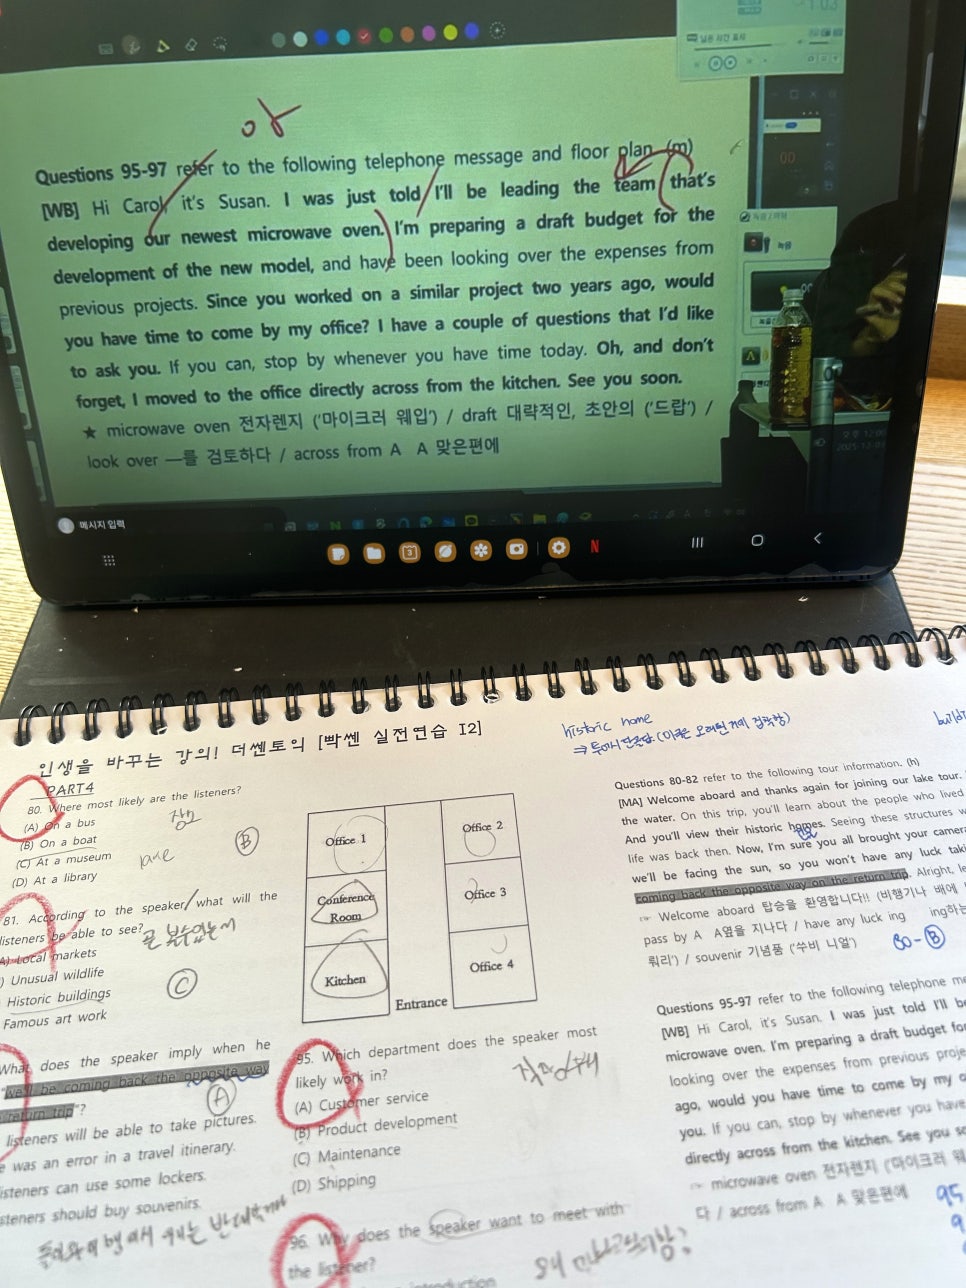 Questions 95-97 refer to the following telephone message and floor plan. (m)
[WB] Hi Carol, it's Susan. I was just told I'll be leading the team that's
developing our newest microwave oven. I'm preparing a draft budget for the
development of the new model, and have been looking over the expenses from
previous projects. Since you worked on a similar project two years ago, would
you have time to come by my office? I have a couple of questions that I'd like
to ask you. If you can, stop by whenever you have time today. Oh, and don't
forget, I moved to the office directly across from the kitchen. See you soon.
★ microwave oven 전자렌지 ('마이크러 웨입') / draft 대략적인, 초안의 ('드랍') /
look over —를 검토하다 / across from A A 맞은편에
메시지 입력
인생을 바꾸는 강의! 더쎈토익 [빡쎈 실전연습 I2]
PART4
80. Where most likely are the listeners?
(A) On a bus
(B) On a boat
(C) At a museum
(D) At a library
B
81. According to the speaker, what will the
listeners be able to see?
(A) Local markets
) Unusual wildlife
Historic buildings
Famous art work
C
What does the speaker imply when he
"we'll be coming back the opposite way
return trip"?
A
listeners will be able to take pictures.
e was an error in a travel itinerary.
isteners can use some lockers.
steners should buy souvenirs.
Office 1
Office 2
Conference
Room
Office 3
Kitchen
Office 4
Entrance
95. Which department does the speaker most
likely work in?
(A) Customer service
(B) Product development
(C) Maintenance
(D) Shipping
96. Why does the speaker want to meet with
the listener?
introduction
historic home
Questions 80-82 refer to the following tour information. (h)
[MA] Welcome aboard and thanks again for joining our lake tour.
the water. On this trip, you'll learn about the people who lived
And you'll view their historic homes. Seeing these structures
life was back then. Now, I'm sure you all brought your camera
we'll be facing the sun, so you won't have any luck taki
coming back the opposite way on the return trip. Alright, le
☞ Welcome aboard 탑승을 환영합니다!! (비행기나 배에
pass by A A옆을 지나다 / have any luck ing ing하는
뤄리') / souvenir 기념품 ('쑤비 니얼')
80-B
Questions 95-97 refer to the following telephone me
[WB] Hi Carol, it's Susan. I was just told I'll be
microwave oven. I'm preparing a draft budget for
looking over the expenses from previous proje
ago, would you have time to come by my o
you. If you can, stop by whenever you have
directly across from the kitchen. See you so
☞ microwave oven 전자렌지 ('마이크러 웨
다 / across from A A 맞은편에
95
9